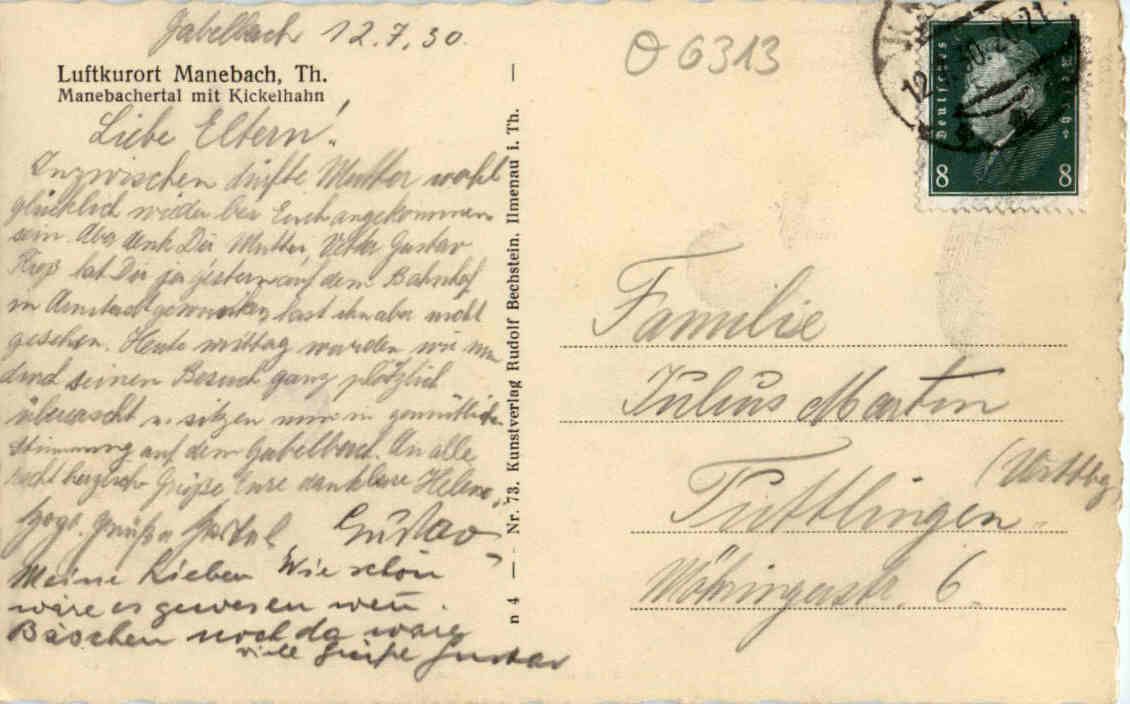 Gabelbach 12.7.30.
Luftkurort Manebach, Th.
Manebachertal mit Kickelhahn
Liebe Eltern!
Inzwischen dürfte Mutter wohl
glücklich wieder bei Euch angekommen
sein. Aber denk Dir Mutter, Vetter Gustav
hat Dir ja gestern auf dem Bahnhof
in Arnstadt gewunken, hast ihn aber nicht
gesehen. Heute mittag wurden wir nun
durch seinen Besuch ganz plötzlich
überrascht u. sitzen nun in gemütlicher
Stimmung auf dem Gabelbach. An alle
recht herzliche Grüße Eure dankbare Helene
Grüße Gustav
Meine Lieben Wie schön
wäre es gewesen wen̄
Bäschen noch da wäre
viele Grüße Gustav
n 4 — Nr. 73. Kunstverlag Rudolf Bechstein, Ilmenau i. Th.
6313
Deutsches Reich
8 8
12. 30.20-21
Familie
Julius Martin
Tuttlingen (Württbg)
Möhringerstr. 6.